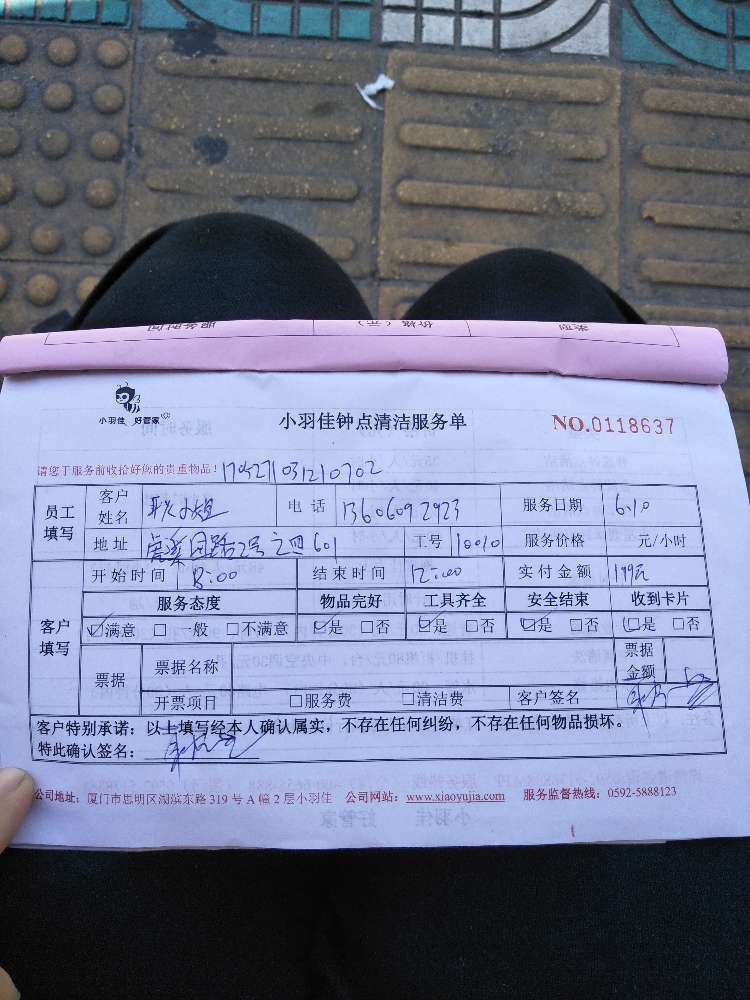 服务时间 价格(元) 类型
小羽佳 好管家
小羽佳钟点清洁服务单 NO.0118637
请您于服务前收拾好您的贵重物品! 1704271031210702
员工填写 客户姓名 小姐 电话 13606092923 服务日期 6.10
地址 虎溪园路2号之四601 工号 10010 服务价格 元/小时
客户填写 开始时间 8:00 结束时间 12:00 实付金额 199元
服务态度 物品完好 工具齐全 安全结束 收到卡片
☑满意 □一般 □不满意 ☑是 □否 ☑是 □否 ☑是 □否 ☑是 □否
票据 票据名称 票据金额
开票项目 □服务费 □清洁费 客户签名
客户特别承诺:以上填写经本人确认属实,不存在任何纠纷,不存在任何物品损坏。
特此确认签名:
公司地址:厦门市思明区湖滨东路 319 号 A 幢 2 层小羽佳 公司网站:www.xiaoyujia.com 服务监督热线:0592-5888123